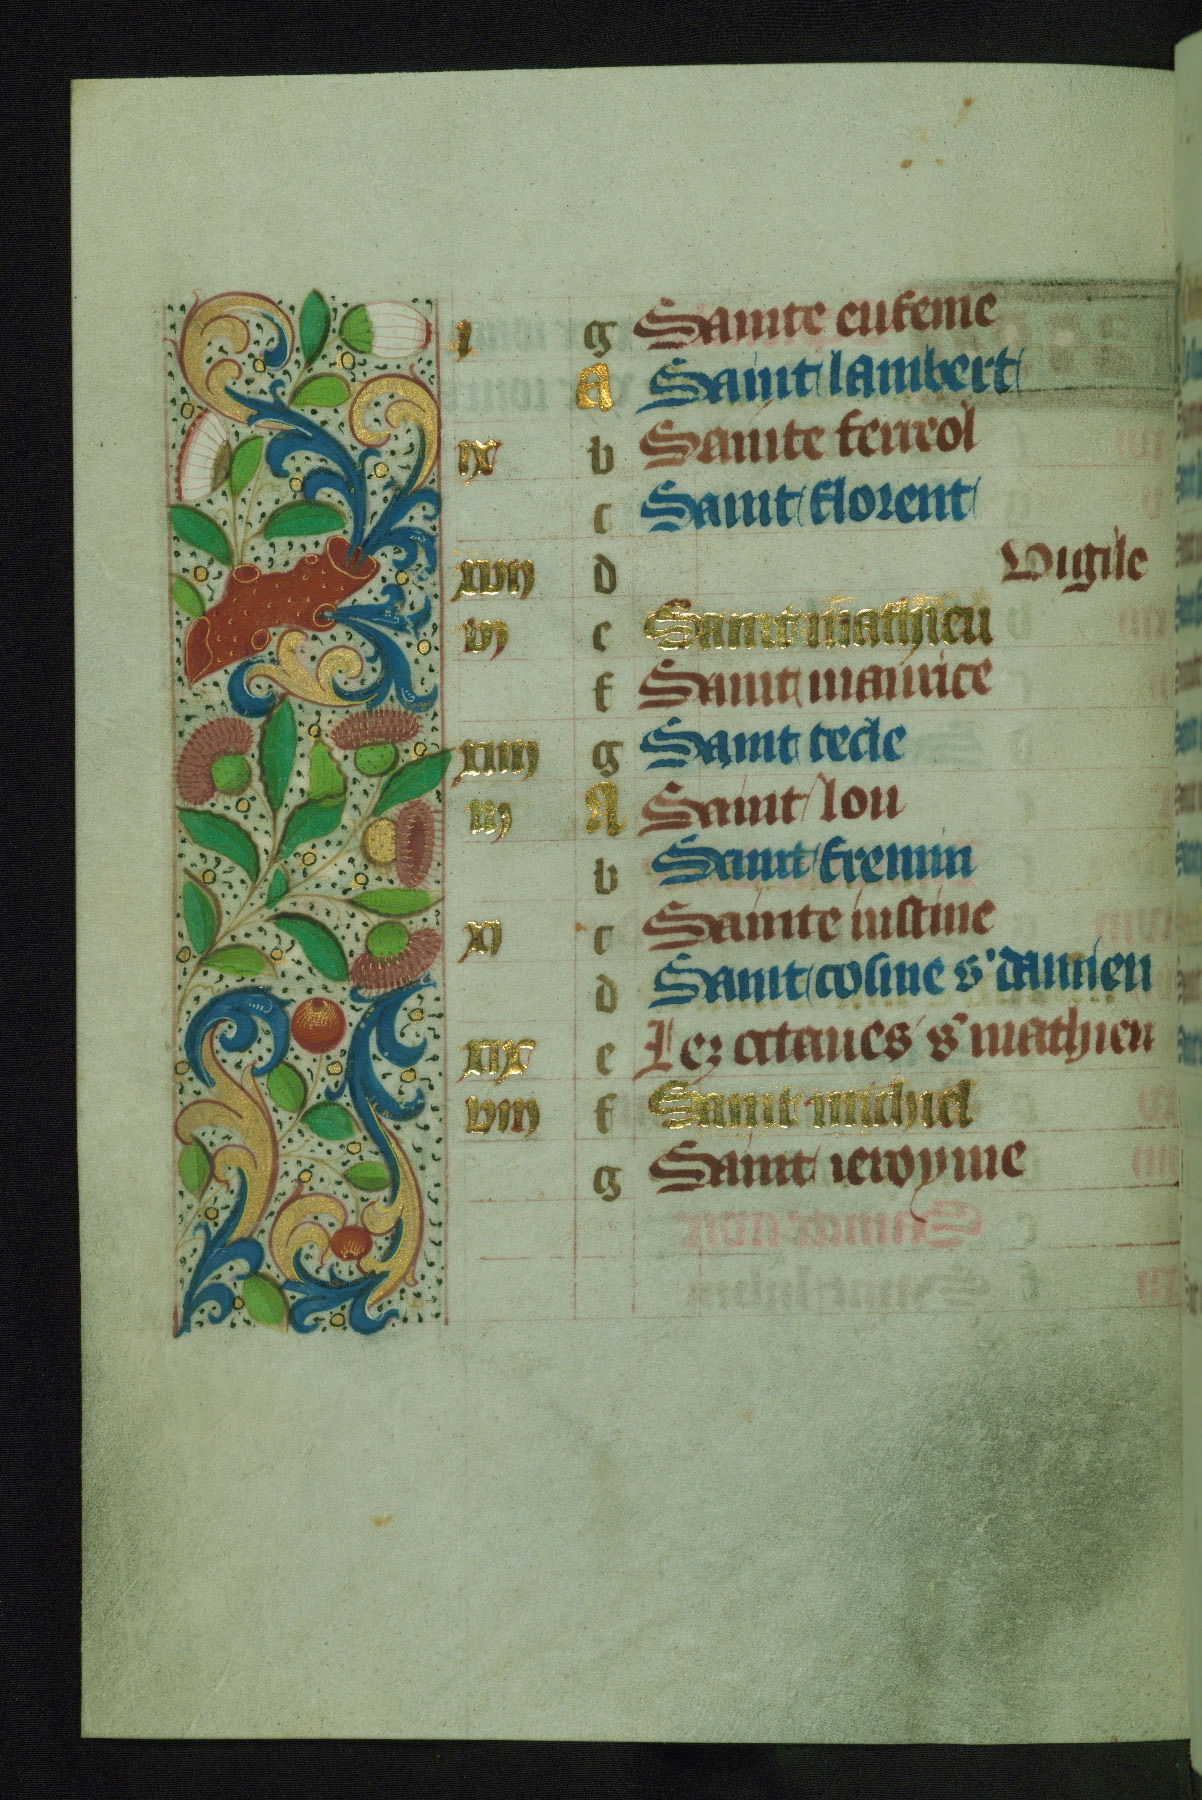 i g Sainte eufeme
A Saint lambert
ix b Sainte ferreol
c Saint florent
xvii d Vigile
vi e Saint mathieu
f Saint maurice
xiiii g Saint tecle
iii A Saint lou
b Saint fremin
xi c Sainte iustine
d Saint cosme s' damien
xix e Lez octaues s' mathieu
viii f Saint michiel
g Saint ieroyme